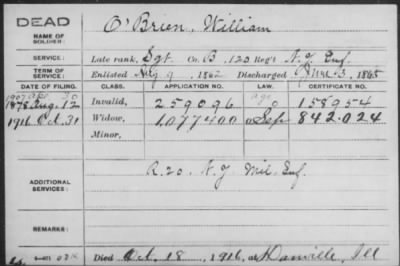 DEAD
NAME OF SOLDIER: O'Brien, William
SERVICE: Late rank, Sgt. Co. B, 120 Reg't N.Y. Inf.
TERM OF SERVICE: Enlisted Aug 9, 1862 Discharged June 3, 1865
DATE OF FILING. CLASS. APPLICATION NO. LAW. CERTIFICATE NO.
1907 Apr 20
1878 Aug. 12 Invalid, 259096 158954
1916 Oct. 31 Widow, 1077400 Sep 842.024
Minor,
ADDITIONAL SERVICES: R. 20. N.Y. Mil. Inf.
REMARKS:
Died Oct. 18, 1916, at Danville, Ill